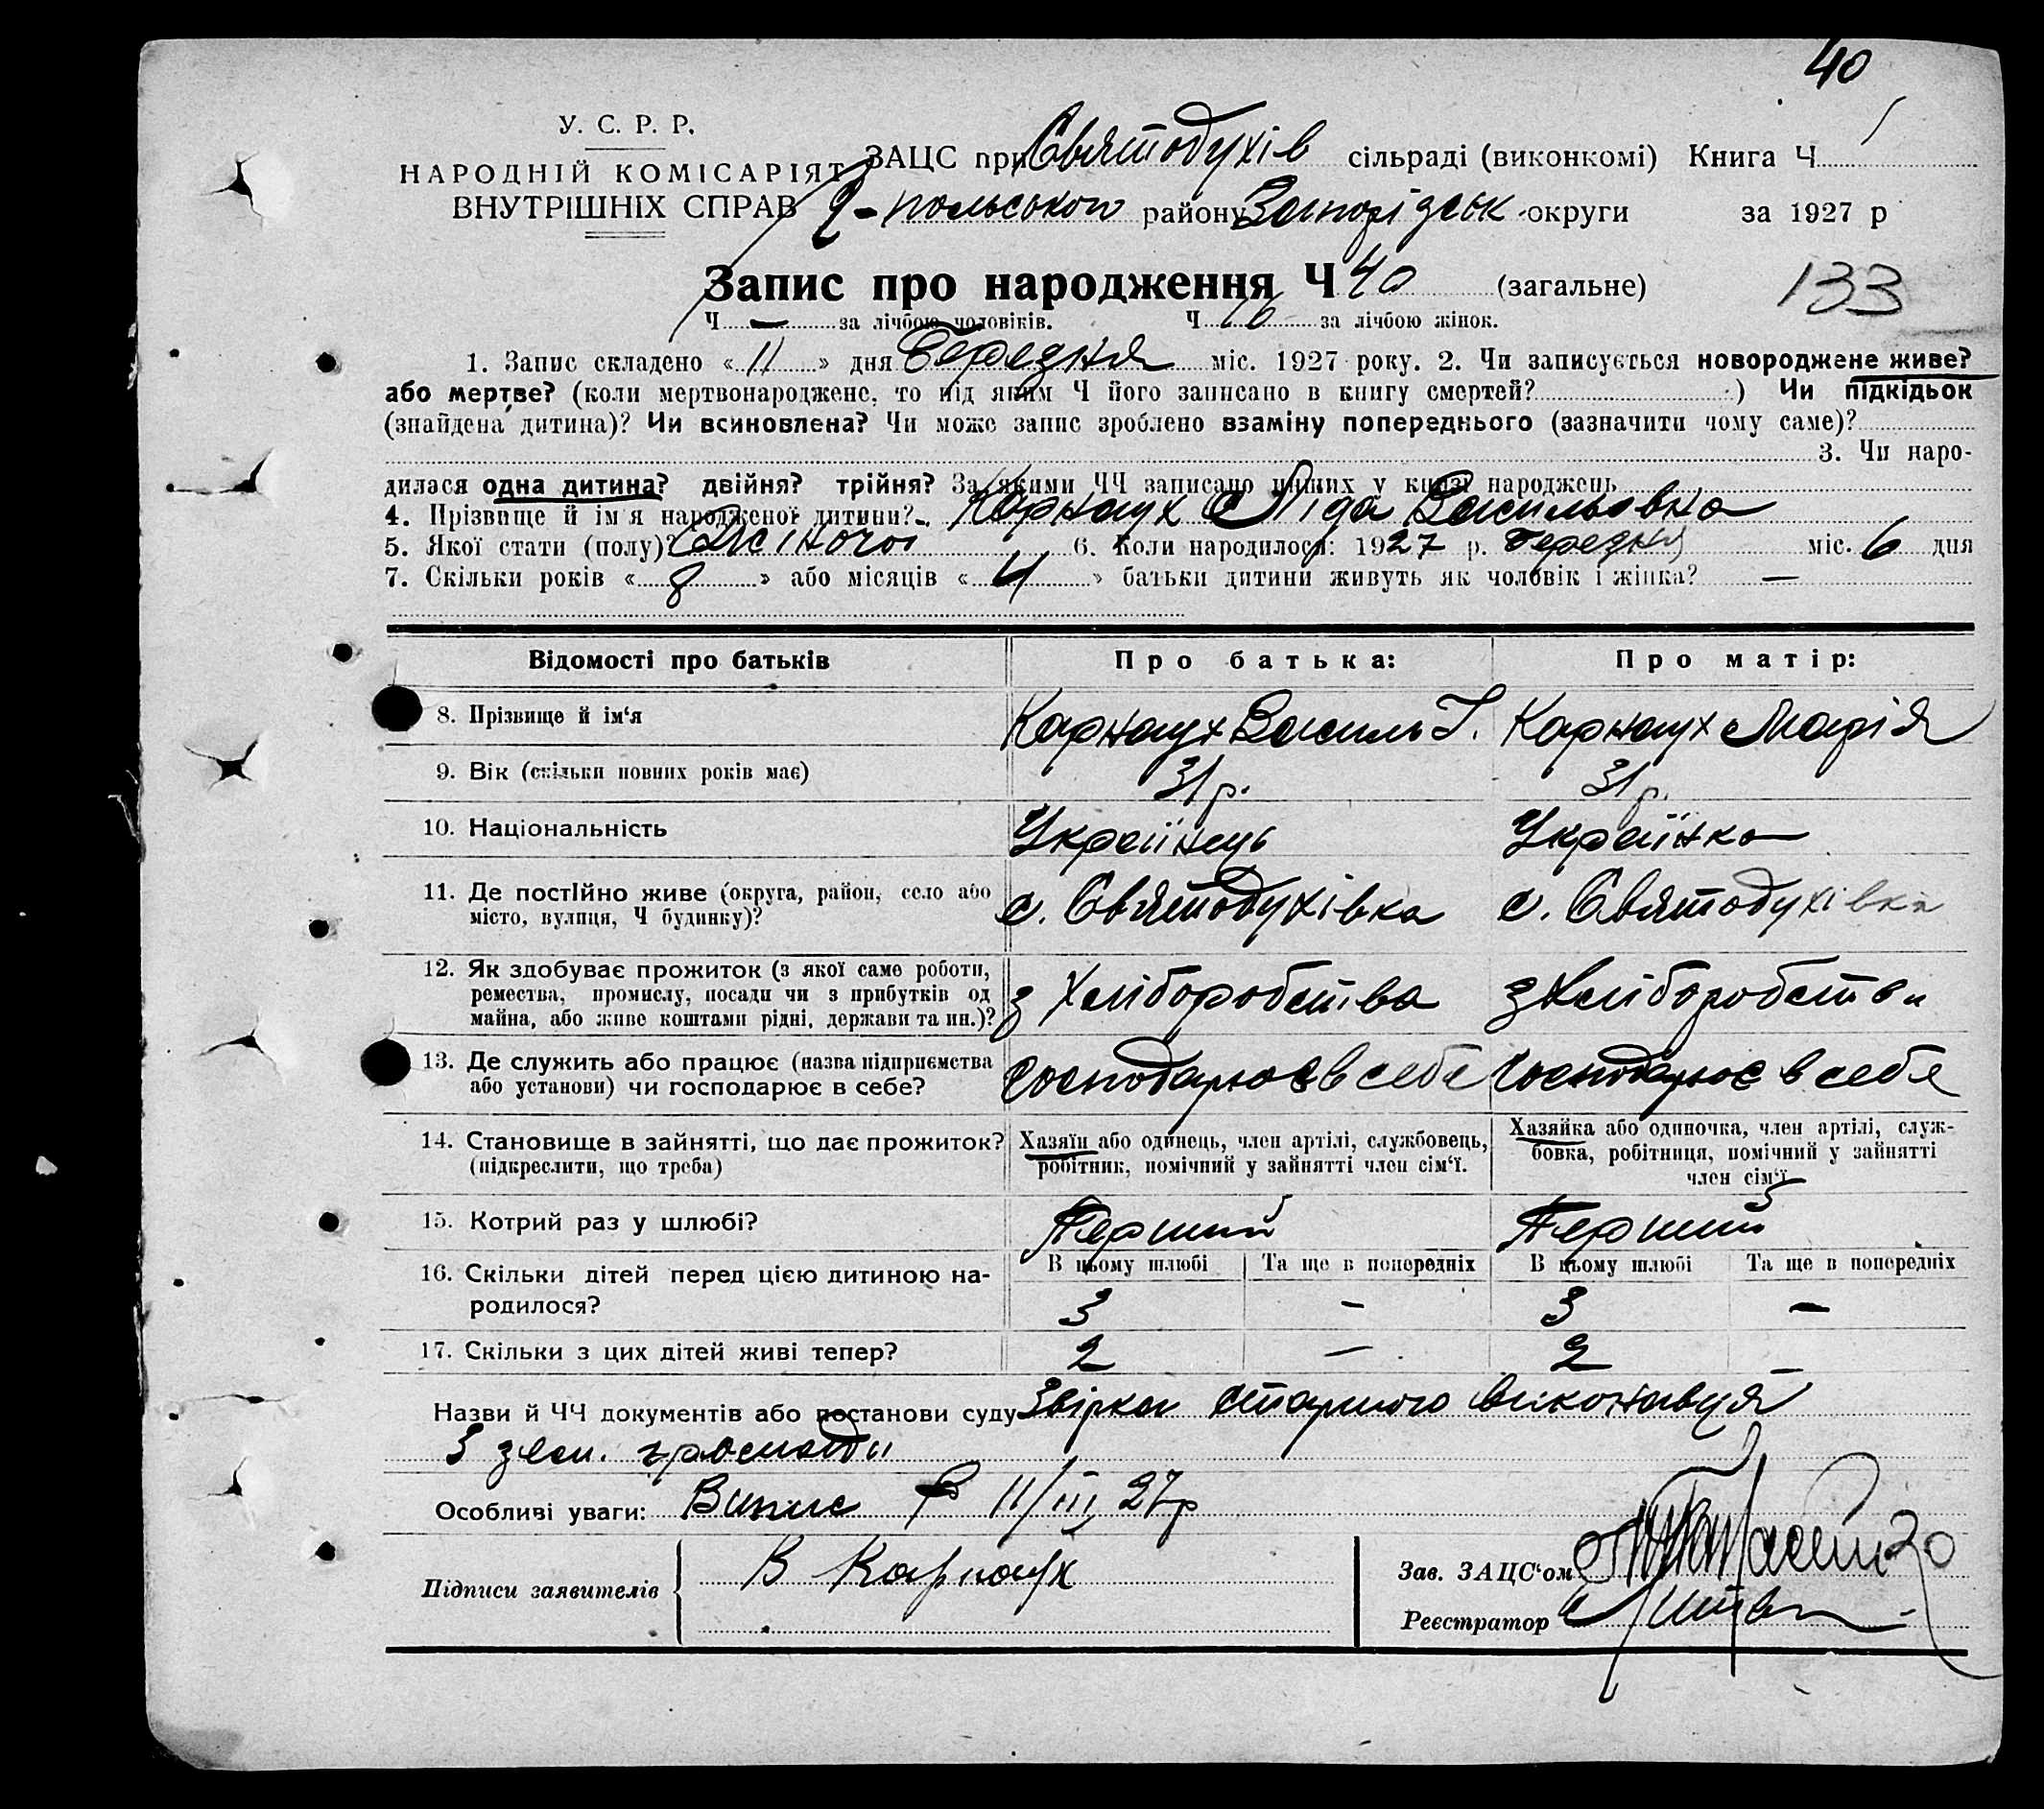 40
У. С. Р. Р.
НАРОДНІЙ КОМІСАРІЯТ
ВНУТРІШНІХ СПРАВ
ЗАЦС при Святодухів сільраді (виконкомі) Книга Ч
польського району Запорізськ округи за 1927 р
Запис про народження Ч 40 (загальне)
133
Ч — за лічбою чоловіків. Ч 16 за лічбою жінок.
1. Запис складено « 11 » дня Березня міс. 1927 року. 2. Чи записується новороджене живе?
або мертве? (коли мертвонароджене, то під яким Ч його записано в книгу смертей? ) Чи підкідьок
(знайдена дитина)? Чи всиновлена? Чи може запис зроблено взаміну попереднього (зазначити чому саме)?
3. Чи наро-
дилася одна дитина? двійня? трійня? За якими ЧЧ записано інших у книзі народжень
4. Прізвище й ім'я народженої дитини? Карнаух Ліда Васильовна
5. Якої стати (полу)? Жіночої 6. Коли народилося: 1927 р. Березня міс. 6 дня
7. Скільки років « 8 » або місяців « 4 » батьки дитини живуть як чоловік і жінка? —
Відомості про батьків Про батька: Про матір:
8. Прізвище й ім'я Карнаух Василь І. Карнаух Марія
9. Вік (скільки повних років має) 31 р. 31 р.
10. Національність Українець Українка
11. Де постійно живе (округа, район, село або
місто, вулиця, Ч будинку)? с. Святодухівка с. Святодухівка
12. Як здобуває прожиток (з якої саме роботи,
ремества, промислу, посади чи з прибутків од
майна, або живе коштами рідні, держави та ин.)? з Хліборобства з Хліборобства
13. Де служить або працює (назва підприємства
або установи) чи господарює в себе? Господарює в себе Господарює в себе
14. Становище в зайнятті, що дає прожиток?
(підкреслити, що треба)
Хазяїн або одинець, член артілі, службовець,
робітник, помічний у зайнятті член сім'ї.
Хазяйка або одиночка, член артілі, служ-
бовка, робітниця, помічний у зайнятті
член сім'ї
15. Котрий раз у шлюбі? Перший Перший
16. Скільки дітей перед цією дитиною на-
родилося?
В цьому шлюбі Та ще в попередніх В цьому шлюбі Та ще в попередніх
3 — 3 —
17. Скільки з цих дітей живі тепер? 2 — 2
Назви й ЧЧ документів або постанови суду Звірка старшого виконавця
3 зем. громади
Особливі уваги: Випис 11/III 27р
Підписи заявителів В Карнаух
Зав. ЗАЦС'ом
Реєстратор